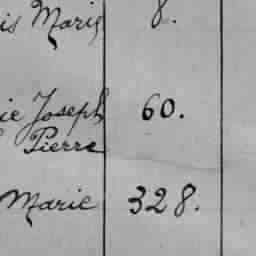 is Marie 8.
ie Joseph 60.
Pierre
Marie 328.